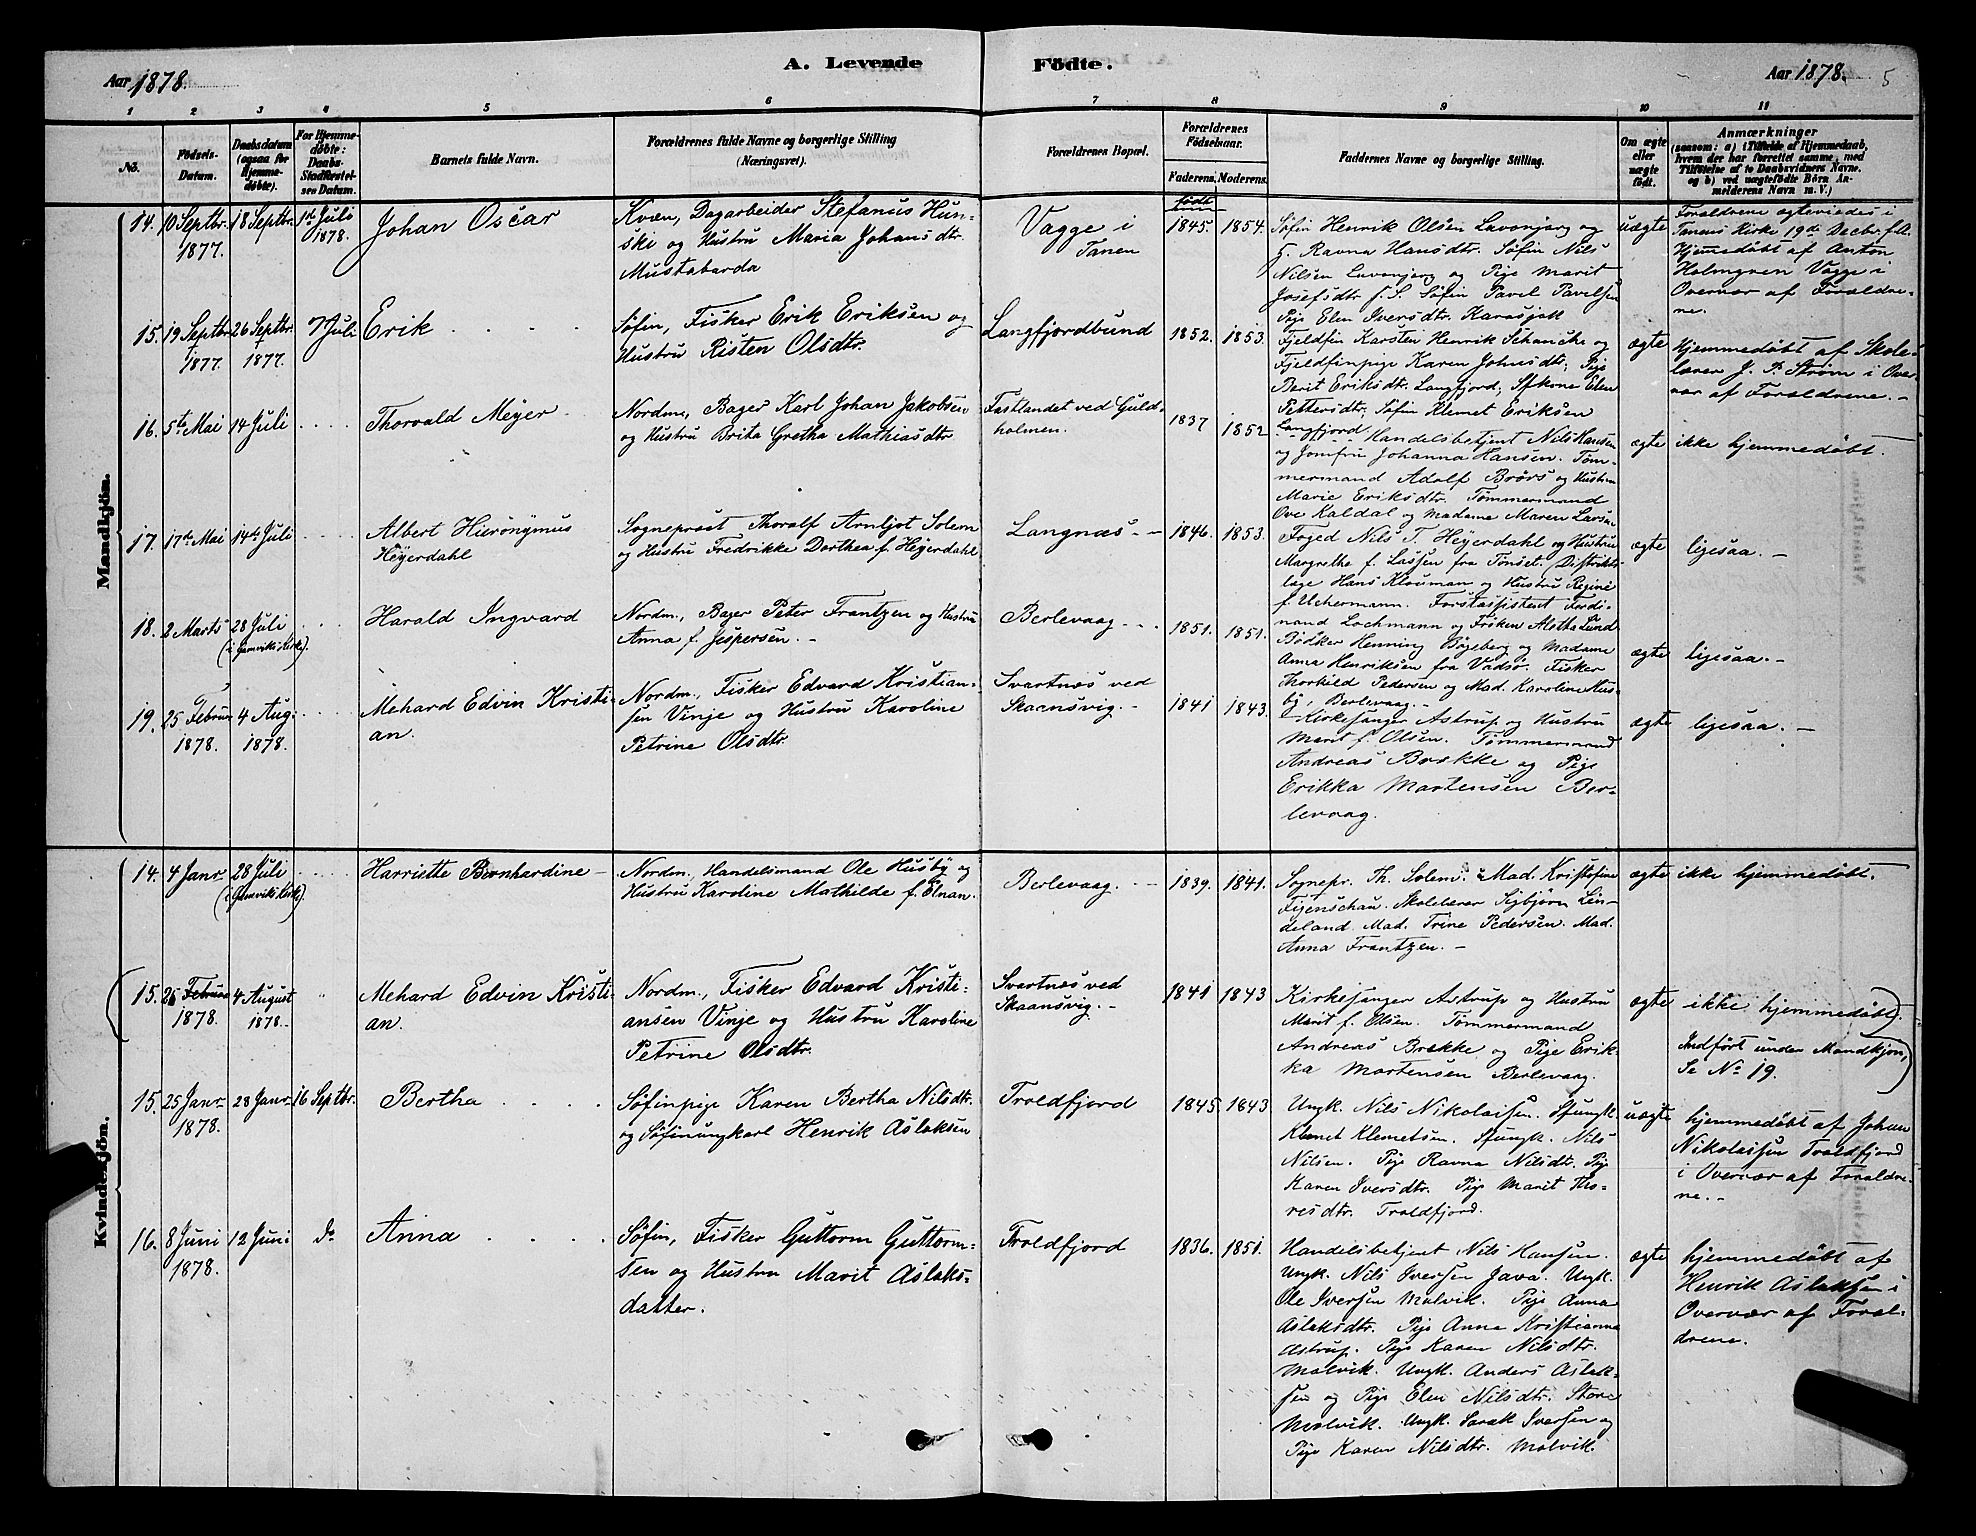 Aar 1878.
A. Levende
Födte.
Aar 1878. 5
1 2 3 4 5 6 7 8 9 10 11
No.
Födsels-
Datum.
Daabsdatum
(ogsaa for
Hjemme-
døbte).
For Hjemme-
døbte:
Daabs-
Stadfæstel-
ses Datum.
Barnets fulde Navn.
Forældrenes fulde Navne og borgerlige Stilling
(Næringsvei).
Forældrenes Bopæl.
Forældrenes
Födselsaar.
Faderens. Moderens.
Faddernes Navne og borgerlige Stilling.
Om ægte
eller
uægte
født.
Anmærkninger
(saasom: a) i Tilfælde af Hjemmedaab,
hvem der har forrettet samme, med
Tilføielse af to Daabsvidners Navne.
og b) ved uægtefødte Börn An-
melderens Navn m. V.)
Mandkjön.
14. 10 Septbr.
1877.
18 Septbr.
1ste Juli
1878.
Johan Oscar
Kvæn, Dagarbeider Stefanus Hun-
ski og Hustru Maria Johansdtr.
Mustabarda
Vagge i
Tanen
født
1845. 1854.
Søfin Henrik Olsen Lavonjarg og
H. Ravna Hansdtr. Søfin Nils
Nilsen Luvonjarg og Pige Marit
Josefsdtr f. S. Søfin Pavel Pavelsen
Pige Elen Iversdtr. Karasjok
uægte
Forældrene ægteviedes i
Tanens Kirke 19de Decbr. f. A.
Hjemedøbt af Anton
Holmgren Vagge i
Overvær af Forældre-
ne.
15. 19 Septbr
1877.
26 Septbr.
1877.
7 Juli
Erik
Søfin, Fisker Erik Eriksen og
Hustru Risten Olsdtr.
Langfjordbund
1852. 1853.
Fjeldfin Karsten Henrik Schanche og
Fjeldfinpige Karen Johnsdtr; Pige
Berit Eriksdtr. Langfjord; Sfkone Elen
Pettersdtr; Søfin Klemet Eriksen
Langfjord
ægte
Hjemmedøbt af Skole-
lærer J. P. Strøm i Over-
vær af Forældrene. -
16. 5te Mai
14 Juli
Thorvald Meyer
Nordm, Bager Karl Johan Jakobsen
og Hustru Brita Gretha Mathiasdtr.
Fastlandet ved Guld-
holmen.
1837 1852
Handelsbetjent Nils Hansen
og Jomfru Johanna Hansen. Tøm-
mermand Adolf Brörs og Hustru
Marie Eriksdtr. Tømmermand
Ove Kaldal og Madame Maren Larsen
ægte
ikke hjemmedøbt.
17. 17de Mai
14de Juli
Albert Hieronymus
Heyerdahl
Sogneprest Thoralf Arnljot Solem
og Hustru Fredrikke Dorthea f. Heyerdahl
Langnæs. -
1846. 1853.
Foged Nils T. Heyerdahl og Hustru
Margrethe f. Lassen fra Tønset. Distrikts-
læge Hans Klouman og Hustru Regine
f. Uchermann. Forstassistent Ferdi-
nand Lochmann og Frøken Aletha Lund
ægte
ligesaa. -
18. 2 Marts
28 Juli
(i Gamviks Kirke).
Harald Ingvard
Nordm., Bager Peter Frantzen og Hustru
Anna f. Jespersen. -
Berlevaag
1851. 1851.
Bødker Henning Bøgeberg og Madame
Anna Henriksen fra Vadsø. Fisker
Thorkild Pedersen og Mad. Karoline Hus-
by, Berlevaag. -
ægte
ligesaa. -
19. 25 Februar
1878.
4 Aug.
1878.
Mehard Edvin Kristi-
an.
Nordm., Fisker Edvard Kristian-
sen Vinje og Hustru Karoline
Petrine Olsdtr.
Svartnæs ved
Skaansvig. -
1841 1843.
Kirkesanger Astrup og Hustru
Marit f. Olsen. Tømmermand
Andreas Brække og Pige
Erikka Mortensen Ber-
levaag.
ægte
ligesaa. -
Kvindekjön.
14. 4 Janr
28 Juli
(i Gamviks Kirke).
Harriette Bernhardine
Nordm, Handelsmand Ole Husby og
Hustru Karoline Mathilde f. Elnan.
Berlevaag. -
1839. 1841.
Sognepr. Th. Solem. Mad. Kristofine
Figenschau. Skolelærer Sigbjørn Lin-
deland. Mad. Trine Pedersen. Mad.
Anna Frantzen. -
ægte
ikke hjemmedøbt.
15. 25 Februar
1878.
4 August
1878.
Mehard Edvin Kristi-
an.
Nordm., Fisker Edvard Kristi-
ansen Vinje og Hustru Karoline
Petrine Olsdtr.
Svartnæs ved
Skaansvig. -
1841 1843
Kirkesanger Astrup og Hustru
Marit f. Olsen. Tømmermand
Andreas Brække og Pige Erik-
ka Mortensen Berlevaag.
ægte
ikke hjemmedøbt.
Indført under Mandkjøn,
Se No 19.
15. 25 Janr
1878.
28 Janr
16 Septbr.
Bertha
Søfinpige Karen Bertha Nilsdtr.
og Søfinungkarl Henrik Aslaksen
Troldfjord
1845 1843
Ungk. Nils Nikolaisen. Sfungk.
Klemet Klemetsen. Sfungk. Nils
Nilsen. Pige Ravna Nilsdtr. Pige
Karen Iversdtr. Pige Marit Tho-
resdtr. Troldfjord.
uægte
hjemmedøbt af Johan
Nikolaisen Troldfjord
i Overvær af Forældre-
ne. -
16. 8 Juni
1878.
12 Juni
do
Anna
Søfin, Fisker Guttorm Guttorm-
sen og Hustru Marit Aslaks-
datter.
Troldfjord
1836. 1851.
Handelsbetjent Nils Hansen.
Ungk. Nils Iversen Java. Ungk.
Ole Iversen Molvik. Pige Anna
Aslaksdtr. Pige Anne Kristianna
Astrup. Pige Karen Nilsdtr.
Molvik. Ungk. Anders Aslak-
sen og Pige Elen Nilsdtr. Store
Molvik. Ungk. Sarak Iversen og
Pige Karen Nilsdtr. Molvik.
ægte
hjemmedøbt af
Henrik Aslaksen i
Overvær af Foræl-
drene.